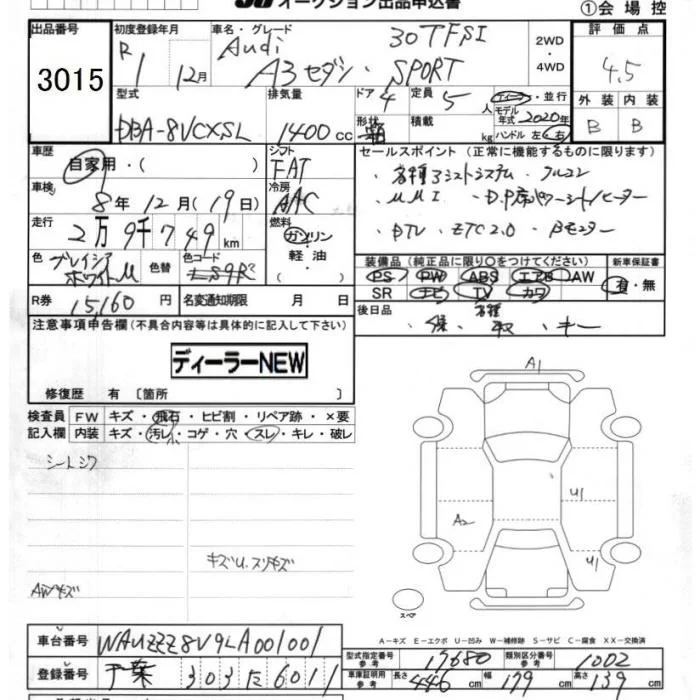 オークション出品申込書
①会場控
出品番号 3015
初度登録年月 R1 12月
車名・グレード Audi 30TFSI
A3セダン・SPORT
2WD・4WD
評価点 4.5
外装 B 内装 B
型式 DBA-8VCXSL
排気量 1400cc
ドア 4 形状
定員 5人 積載 kg
ディーラー・並行
モデル年式 2020年
ハンドル 左・右
車歴 自家用・( )
シフト FAT
車検 8年12月(19日)
冷房 AAC
走行 2万9千749km
燃料 ガソリン・軽油・
色 グレイシアホワイトM 色替 色コード LS9R
R券 15,160円 名変通知期限 月 日
セールスポイント(正常に機能するものに限ります)
・各種アシストシステム・クルコン
・MMI・D.P席パワーシート/ヒーター
・DTV・ETC2.0・Bモニター
装備品(純正品に限り○をつけてください)
PS PW ABS エアB AW
SR ナビ TV カワ
新車保証書 有・無
後日品 ・保・各種取・キー
注意事項申告欄(不具合内容等は具体的に記入して下さい)
ディーラーNEW
修復歴 有〔箇所 〕
検査員記入欄 FW キズ・飛石・ヒビ割・リペア跡・×要
内装 キズ・汚レ・コゲ・穴・スレ・キレ・破レ
シートシワ
キズU.スリキズ
AWキズ
A1
U1
A2
U1
スペア
A-キズ E-エクボ U-凹み W-補修跡 S-サビ C-腐食 XX-交換済
車台番号 WAUZZZ8V9LA001001
登録番号 千葉 303 た 6011
型式指定番号 参考 19680 類別区分番号 参考 1002
車庫証明用 参考 長さ 446cm 幅 179cm 高さ 139cm